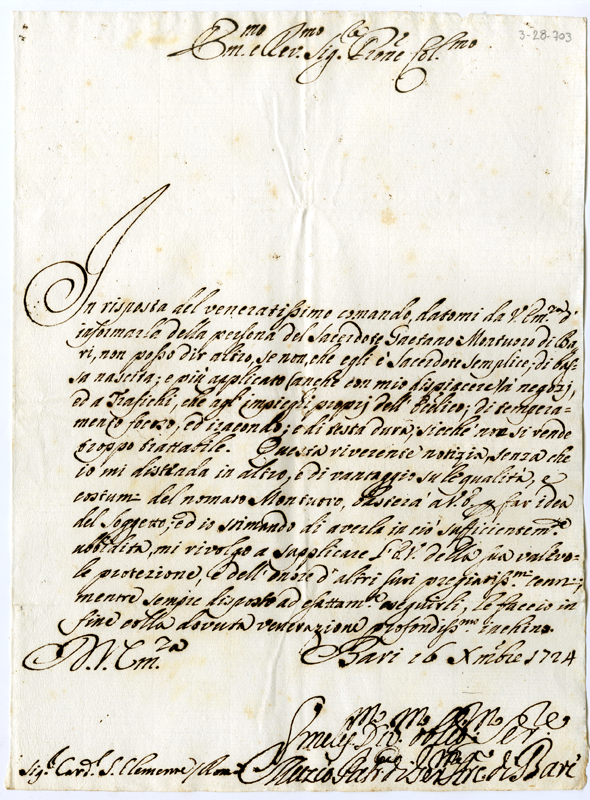 3-28-703
Em.mo e Rev.mo Sig.re P.rone Col.mo
In risposta del veneratissimo comando, datomi da V. Em.za d'
informarla della persona del Sacerdote Gaetano Montuoro di Ba-
ri, non posso dir altro, se non, che egli è Sacerdote semplice, di bas-
sa nascita; e più applicato (anche con mio dispiacere) a' negozj,
ed a Trafichi, che agl'impieghi proprij dell'Eccl.co; di tempera-
mento focoso, ed iracondo; e di testa dura; sicchè non si rende
troppo trattabile. Questa riverente notizia, senza che
io mi distenda in altro, e di vantaggio su le qualità, e
costumi del nomato Montuoro, basterà a V. E. p far idea
del Soggetto; ed io stimando di averla in ciò sufficientem.te
ubbidita, mi rivolgo a supplicare l'E.V. della sua valevo-
le protezione, e dell'onore d'altri suoi pregiatiss.mi cenni;
mentre sempre disposto ad esattam.te eseguirli, le faccio in
fine colla dovuta venerazione profondiss.mo inchino.
D. V. Em.za Bari 16 Xmbre 1724
Sig.r Card.l S. Clemente / Roma
Muzio Arc. di Bari